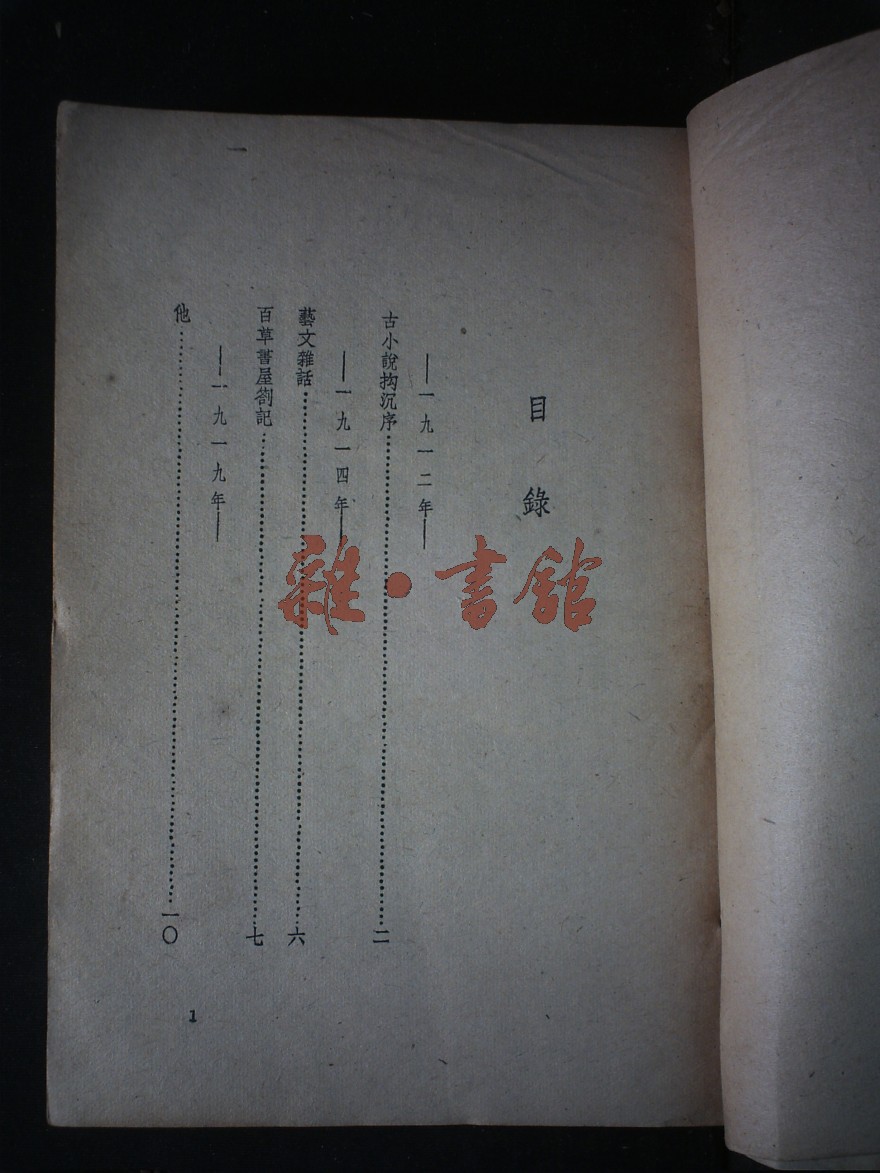 目錄
——一九一二年——
古小說鈎沉序……二
——一九一四年——
藝文雜話……六
百草書屋劄記……七
——一九一九年——
他……一〇
一
1
雜·書館